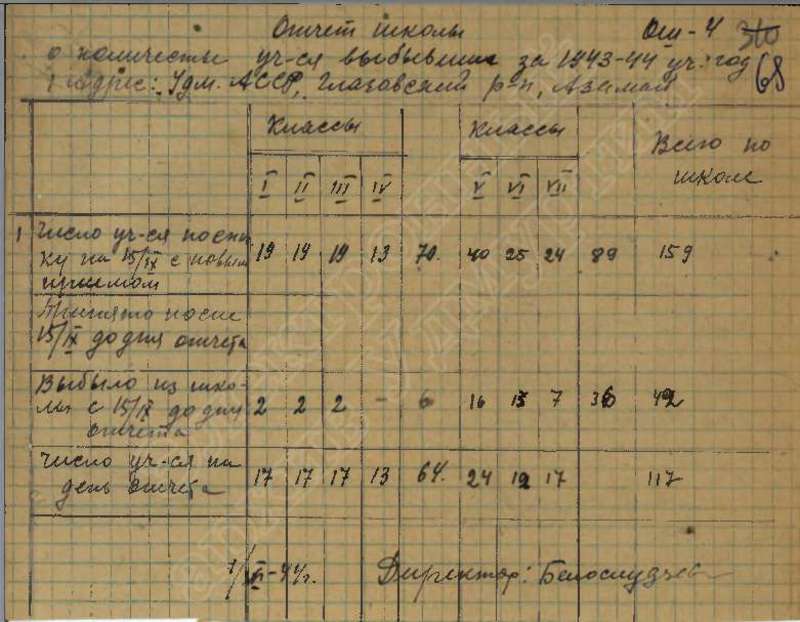 Отчет школы Ош-4 310
о количестве уч-ся выбывших за 1943-44 уч. год 68
Адрес: Удм. АССР, Глазовский р-н, Азамай
Классы Классы Всего по
школе
I II III IV V VI VII
1 Число уч-ся по спис-
ку на 15/IX с новым 19 19 19 13 70. 40 25 24 89 159
приемом
Принято после
15/IX до дня отчета
Выбыло из шко-
лы с 15/IX до дня 2 2 2 - 6 16 13 7 36 42
отчета
Число уч-ся на
день отчета 17 17 17 13 64. 24 12 17 117
1/VI-44г. Директор: Белослудцев